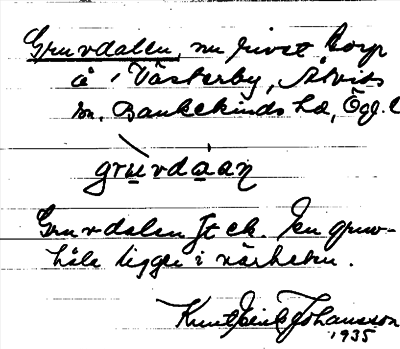 Gruvdalen, nu rivet torp
å Västerby, Åtvids
sn, Bankekinds hd, Ögl.
gruvdaan
Gruvdalen Jt ek. En gruv-
håla ligger i närheten.
Knut Johansson
1935